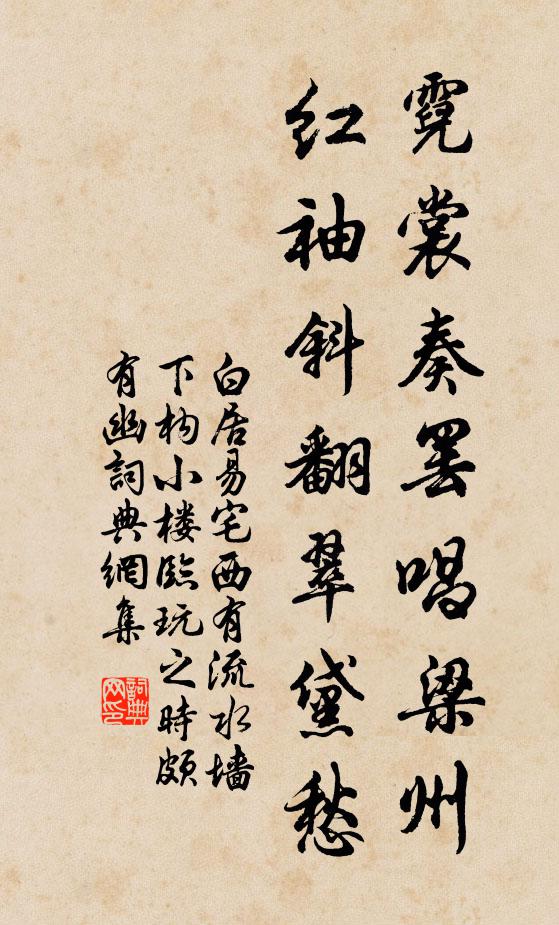 霓裳奏罷唱梁州
红袖斜翻翠黛愁
白居易宅西有流水墙
下构小楼臨玩之時颇
有幽詞典網集
詞典
网印